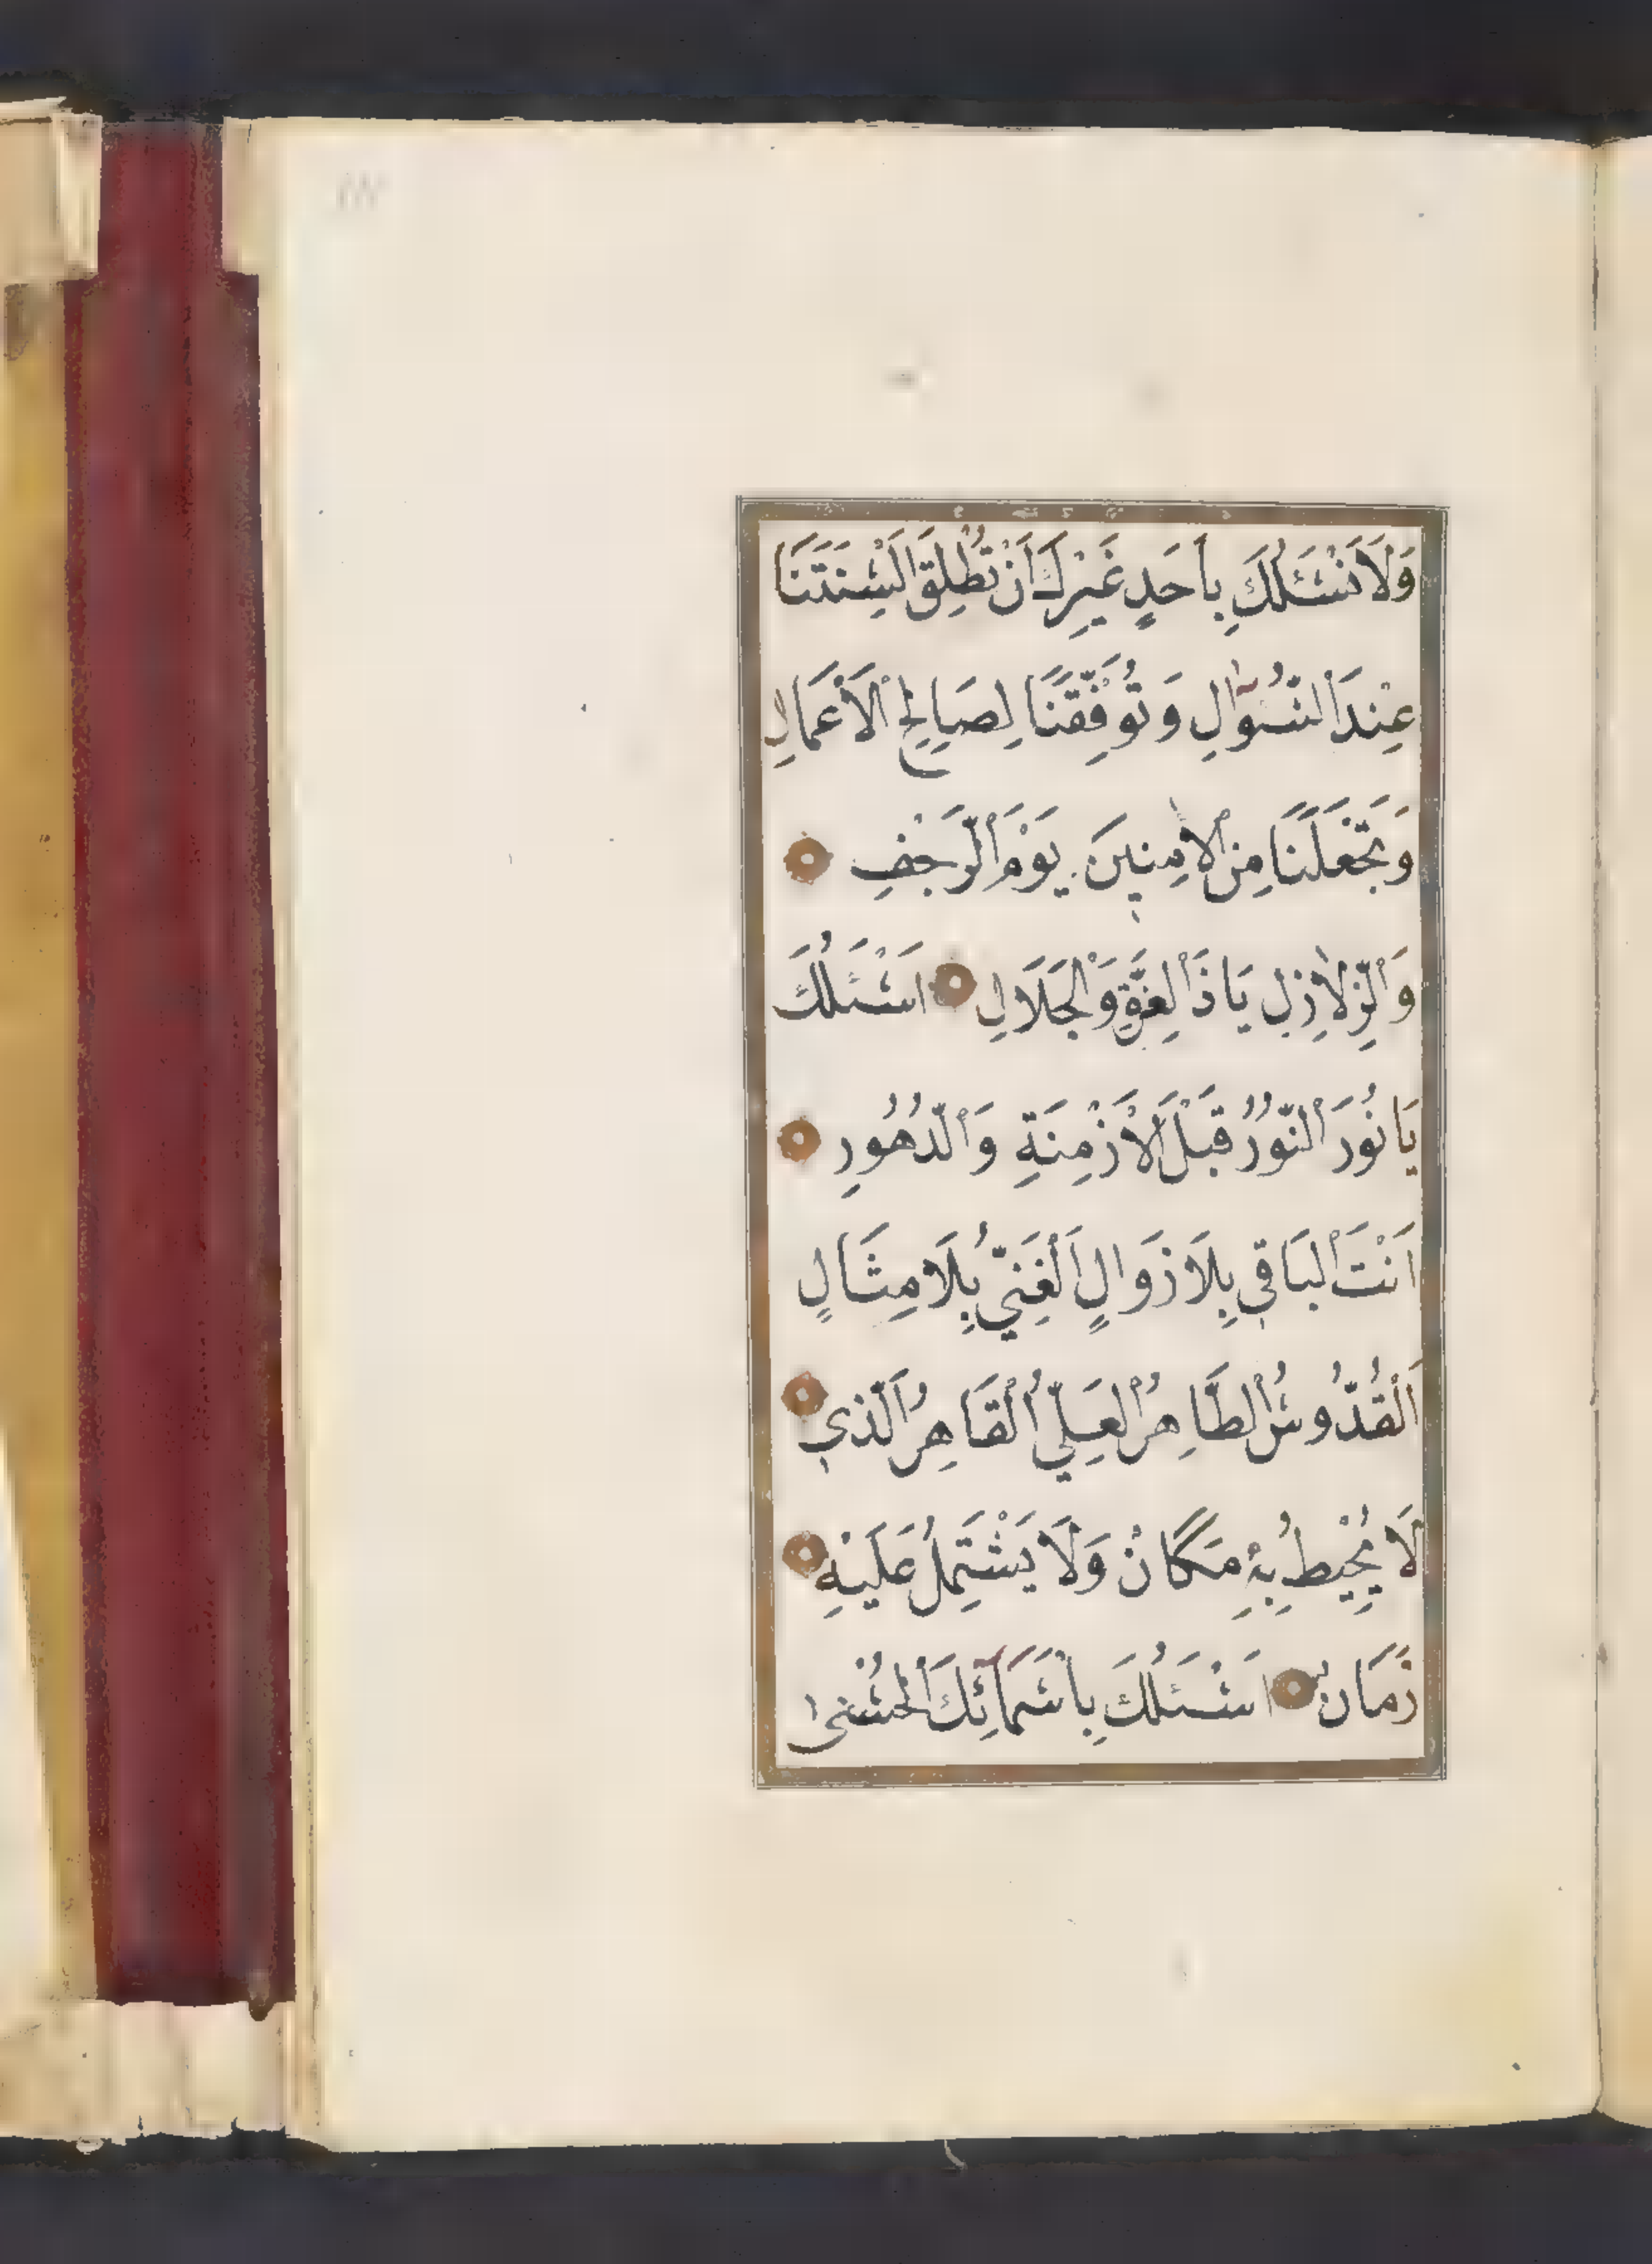 وَلَا نَسْئَلُكَ بِاَحَدٍ غَيْرِكَ اَنْ تُطْلِقَ اَلْسِنَتَنَا
عِنْدَ السُّؤَالِ وَتُوَفِّقَنَا لِصَالِحِ الْاَعْمَالِ
وَتَجْعَلَنَا مِنَ الْاٰمِنِينَ يَوْمَ الرَّجْفِ
وَالزِّلَازِلِ يَا ذَا الْعِزَّةِ وَالْجَلَالِ اَسْئَلُكَ
يَا نُورَ النُّورُ قَبْلَ الْاَزْمِنَةِ وَالدُّهُورِ
اَنْتَ الْبَاقِي بِلَا زَوَالٍ اَلْغَنِيُّ بِلَا مِثَالٍ
اَلْقُدُّوسُ الطَّاهِرُ الْعَلِيُّ الْقَاهِرُ الَّذِي
لَا يُحِيْطُ بِهِ مَكَانٌ وَلَا يَشْتَمِلُ عَلَيْهِ
زَمَانٌ اَسْئَلُكَ بِاَسْمَآئِكَ الْحُسْنٰى